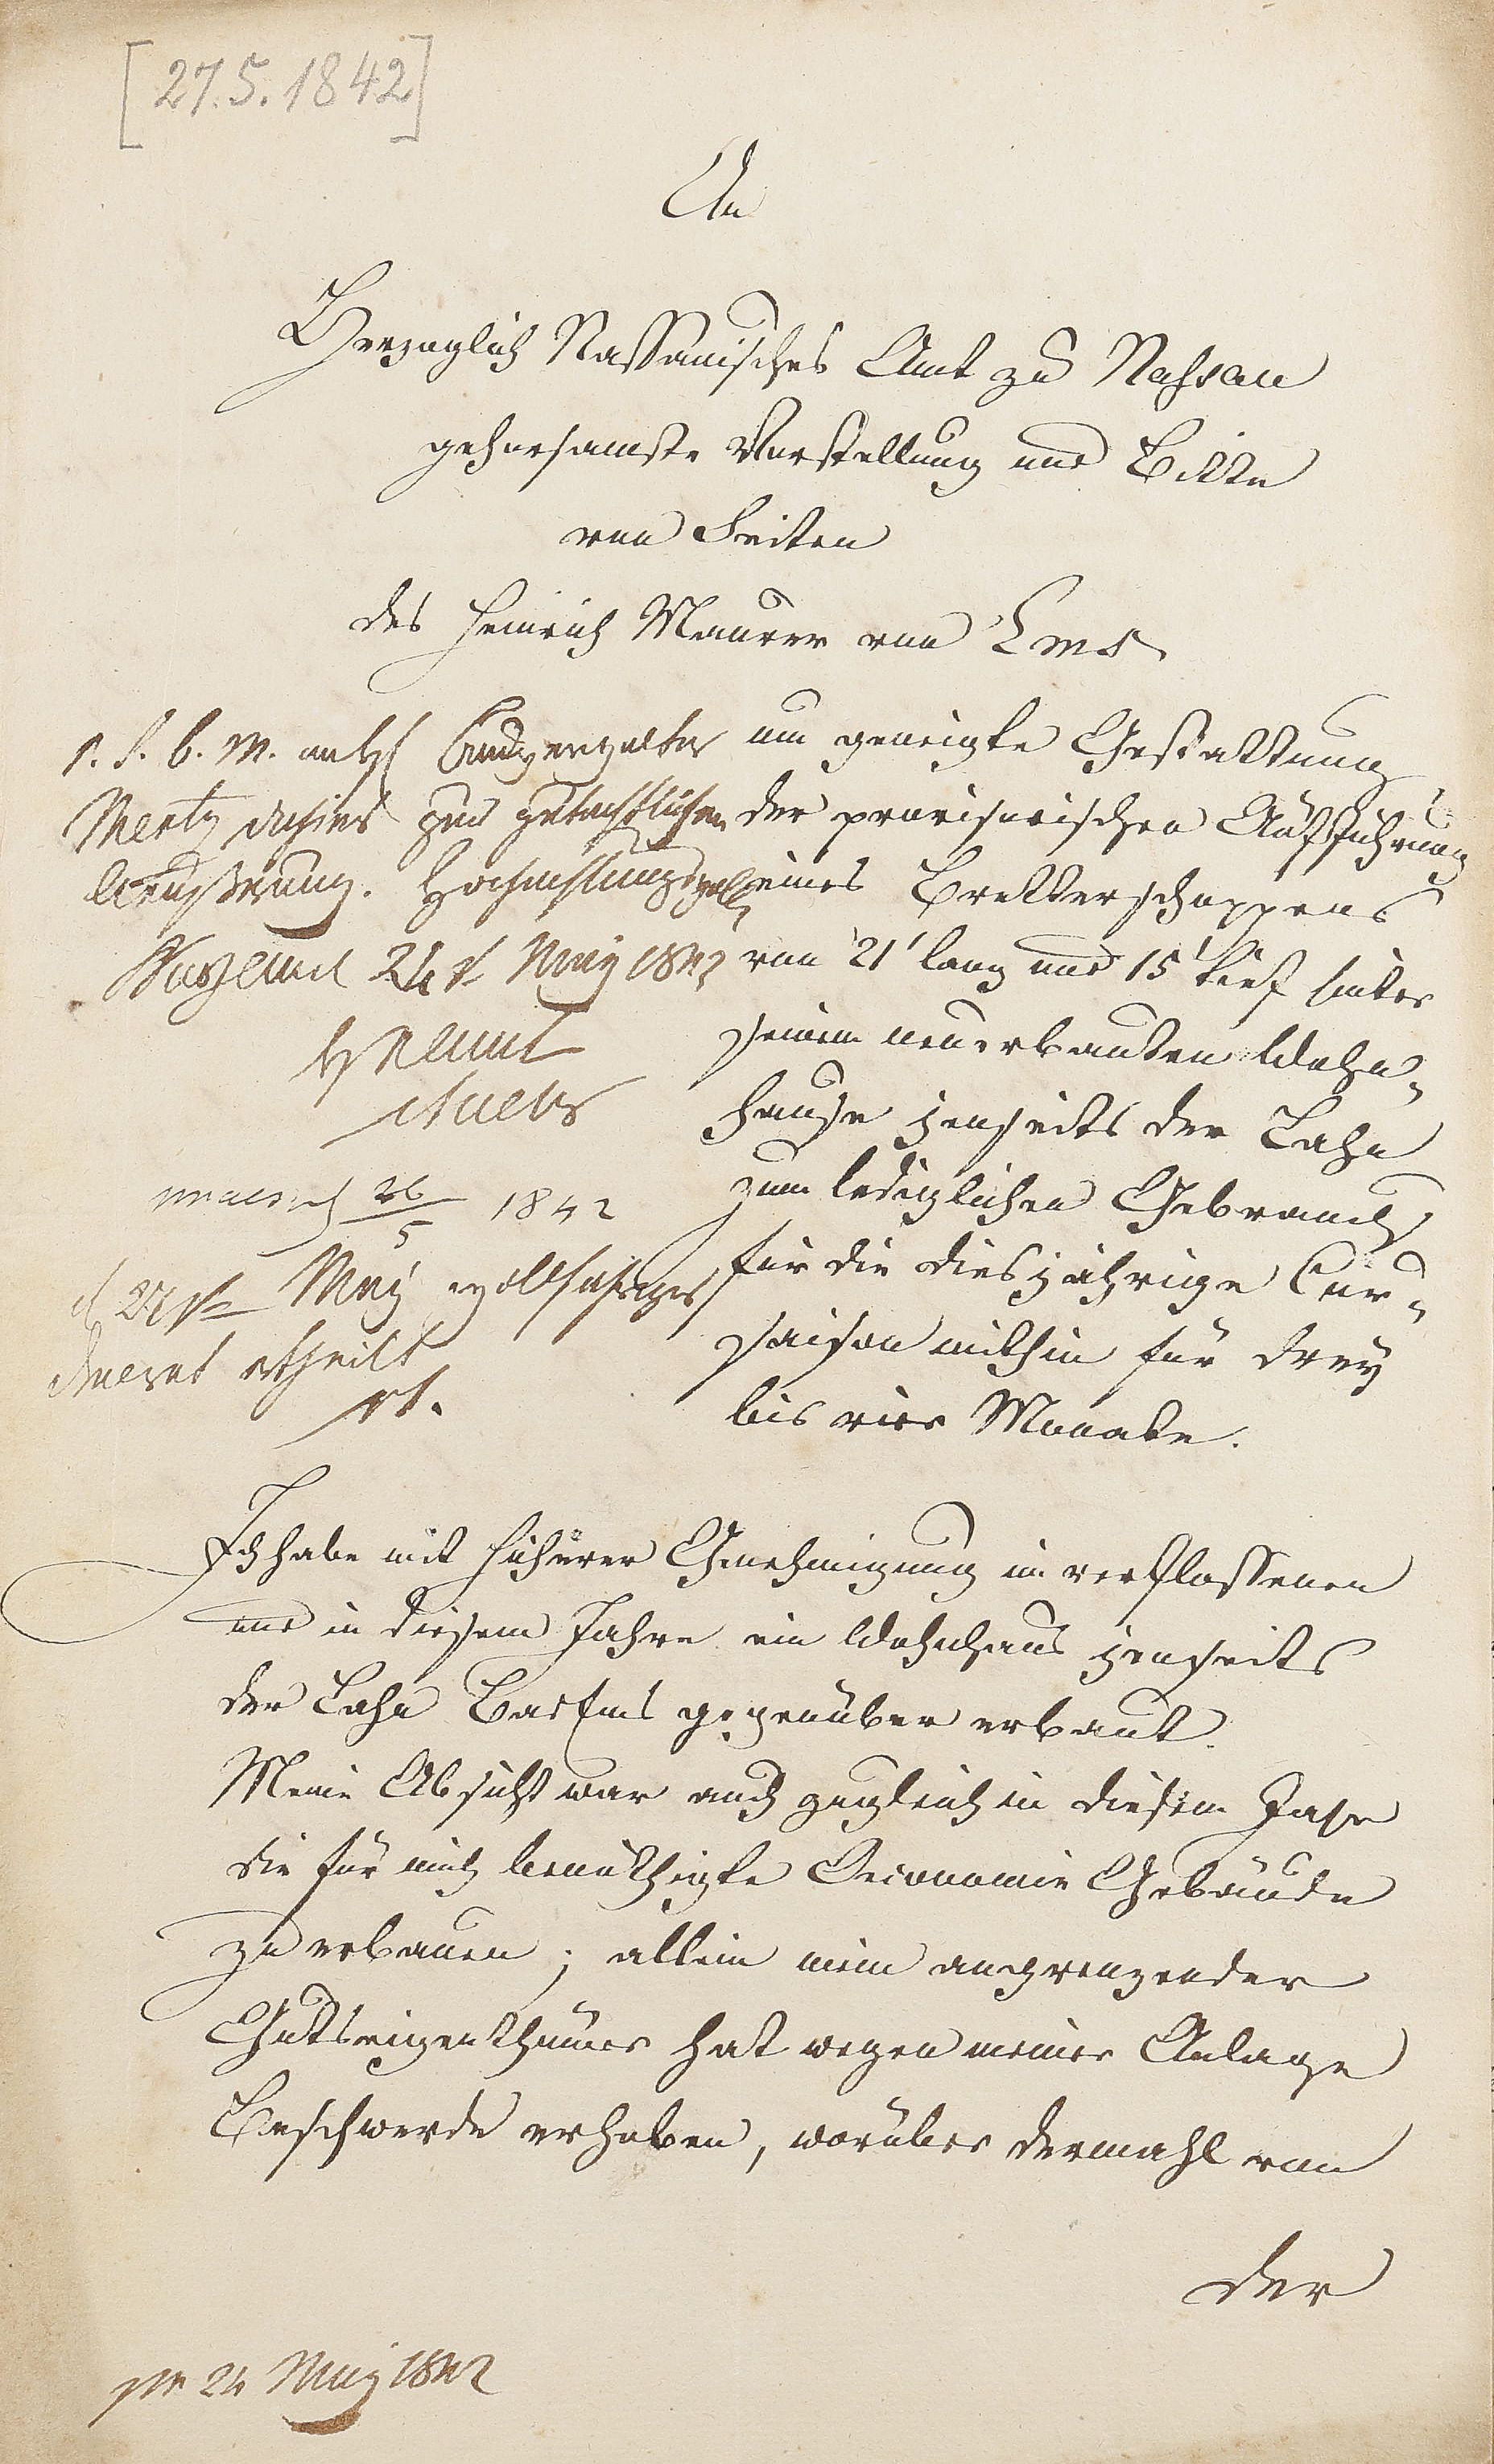 [27.5.1842]
An
Herzoglich Nassauisches Amt zu Nassau
gehorsamste Vorstellung und Bitte
von Seiten
des Heinrich Maurer von Ems
um geneigte Gestattung
der provisorischen Aufführung
eines Bretterschoppens
von 21' lang und 15' tief hinter
seinem neuerbauten Wohn-
hause jenseits der Lahn
zum lediglichen Gebrauch
für die diesjährige Cur-
saison mithin für drey
bis vier Monate.
r. s. b. m. an H
Mertz dahier zur gutachtlichen
Aeußerung. Hochachtungsvoll
Nassau 24 May 1842
H Amt
26/5 1842
d 27 May willfahriges
Decret ertheilt
Ich habe mit höherer Genehmigung im verflossenen
und in diesem Jahre ein Wohnhaus jenseits
der Lahn Bad Ems gegenüber erbaut.
Meine Absicht war auch zugleich in diesem Jahr
die für mich benöthigte Oeconomie Gebäude
zu erbauen; allein mein angrenzender
Gutseigenthümer hat wegen meiner Anlage
Beschwerde erhoben, worüber dermahl von
der
pr 24 May 1842